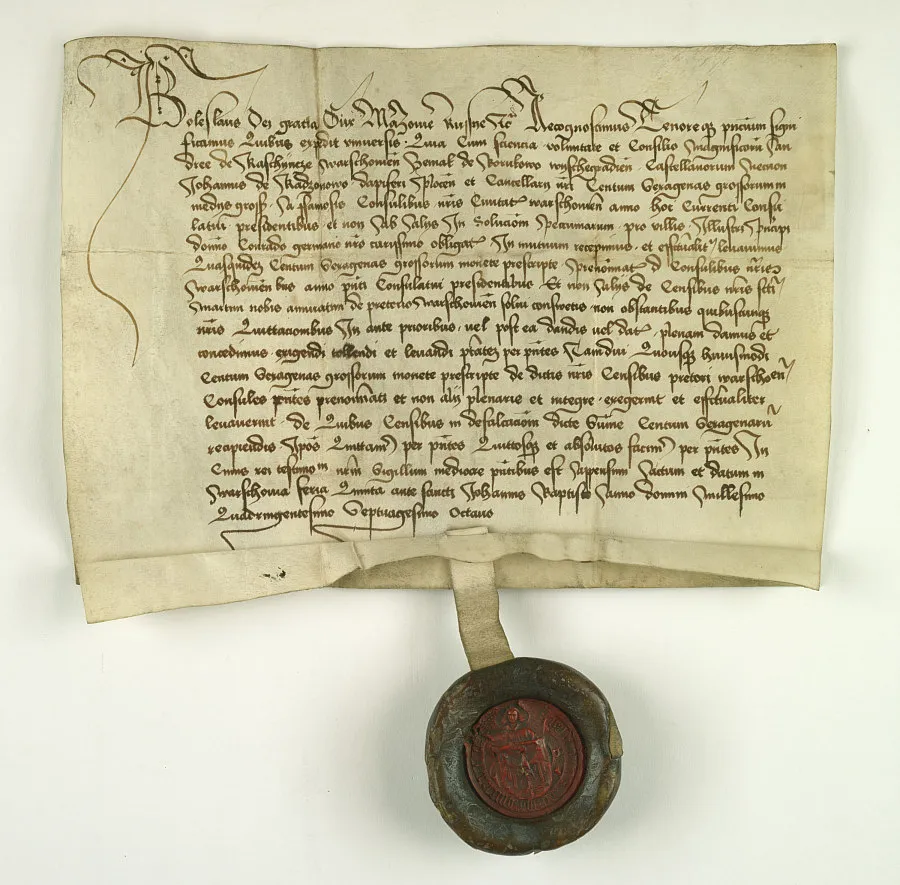 Boleslaus dei gratia Dux Mazovie Russie etc Recognoscimus Tenoreqz pntium signi
ficamus Quibus expedit vniuersis Quia Cum sciencia voluntate et Consilio Magnificorum An
dree de warschouien de wyschegradien Castellanorum necnon
Johannis de Radzonowo dapiferi Plocen et Cancellarij nri Centum Sexagenas grossorum in
medijs gross A famosis Consulibus nris Ciuitatis warschouien anno hoc Currenti Consu
latui presidentibus et non Ab Alijs In Solucionem pecuniarum pro villis Illustri principi
domino Conrado germano nro carissimo obligatis In mutuum recepimus et effectualiter leuauimus
Quasquidem Centum Sexagenas grossorum monete prescripte prenominatis Consulibus nris
warschouiensibus anno pnti Consulatui presidentibus Et non Alijs de Censibus nris
martini nobis annuatim de pretorio warschouien solui consuetis non obstantibus quibuscunqz
nris Quittacionibus In ante prioribus vel post ea dandis vel datis plenam damus et
concedimus exigendi tollendi et leuandi ptatem per pntes Tamdiu Quousqz huiusmodi
Centum Sexagenas grossorum monete prescripte de dictis nris Censibus pretorij warschouien
Consules pntes prenominati et non alij plenarie et integre exegerint et effectualiter
leuauerint de Quibus Censibus in defalcacionem dicte Summe Centum Sexagenarum
recipiendis Ipos Quittamus per pntes Quittosqz et absolutos facimus per pntes In
Cuius rei testimonium nrm Sigillum mediocre pntibus est Appensum Actum et datum in
warschouia feria Quinta ante sancti Johannis Baptiste Anno domini millesimo
Quadringentesimo Septuagesimo Octauo